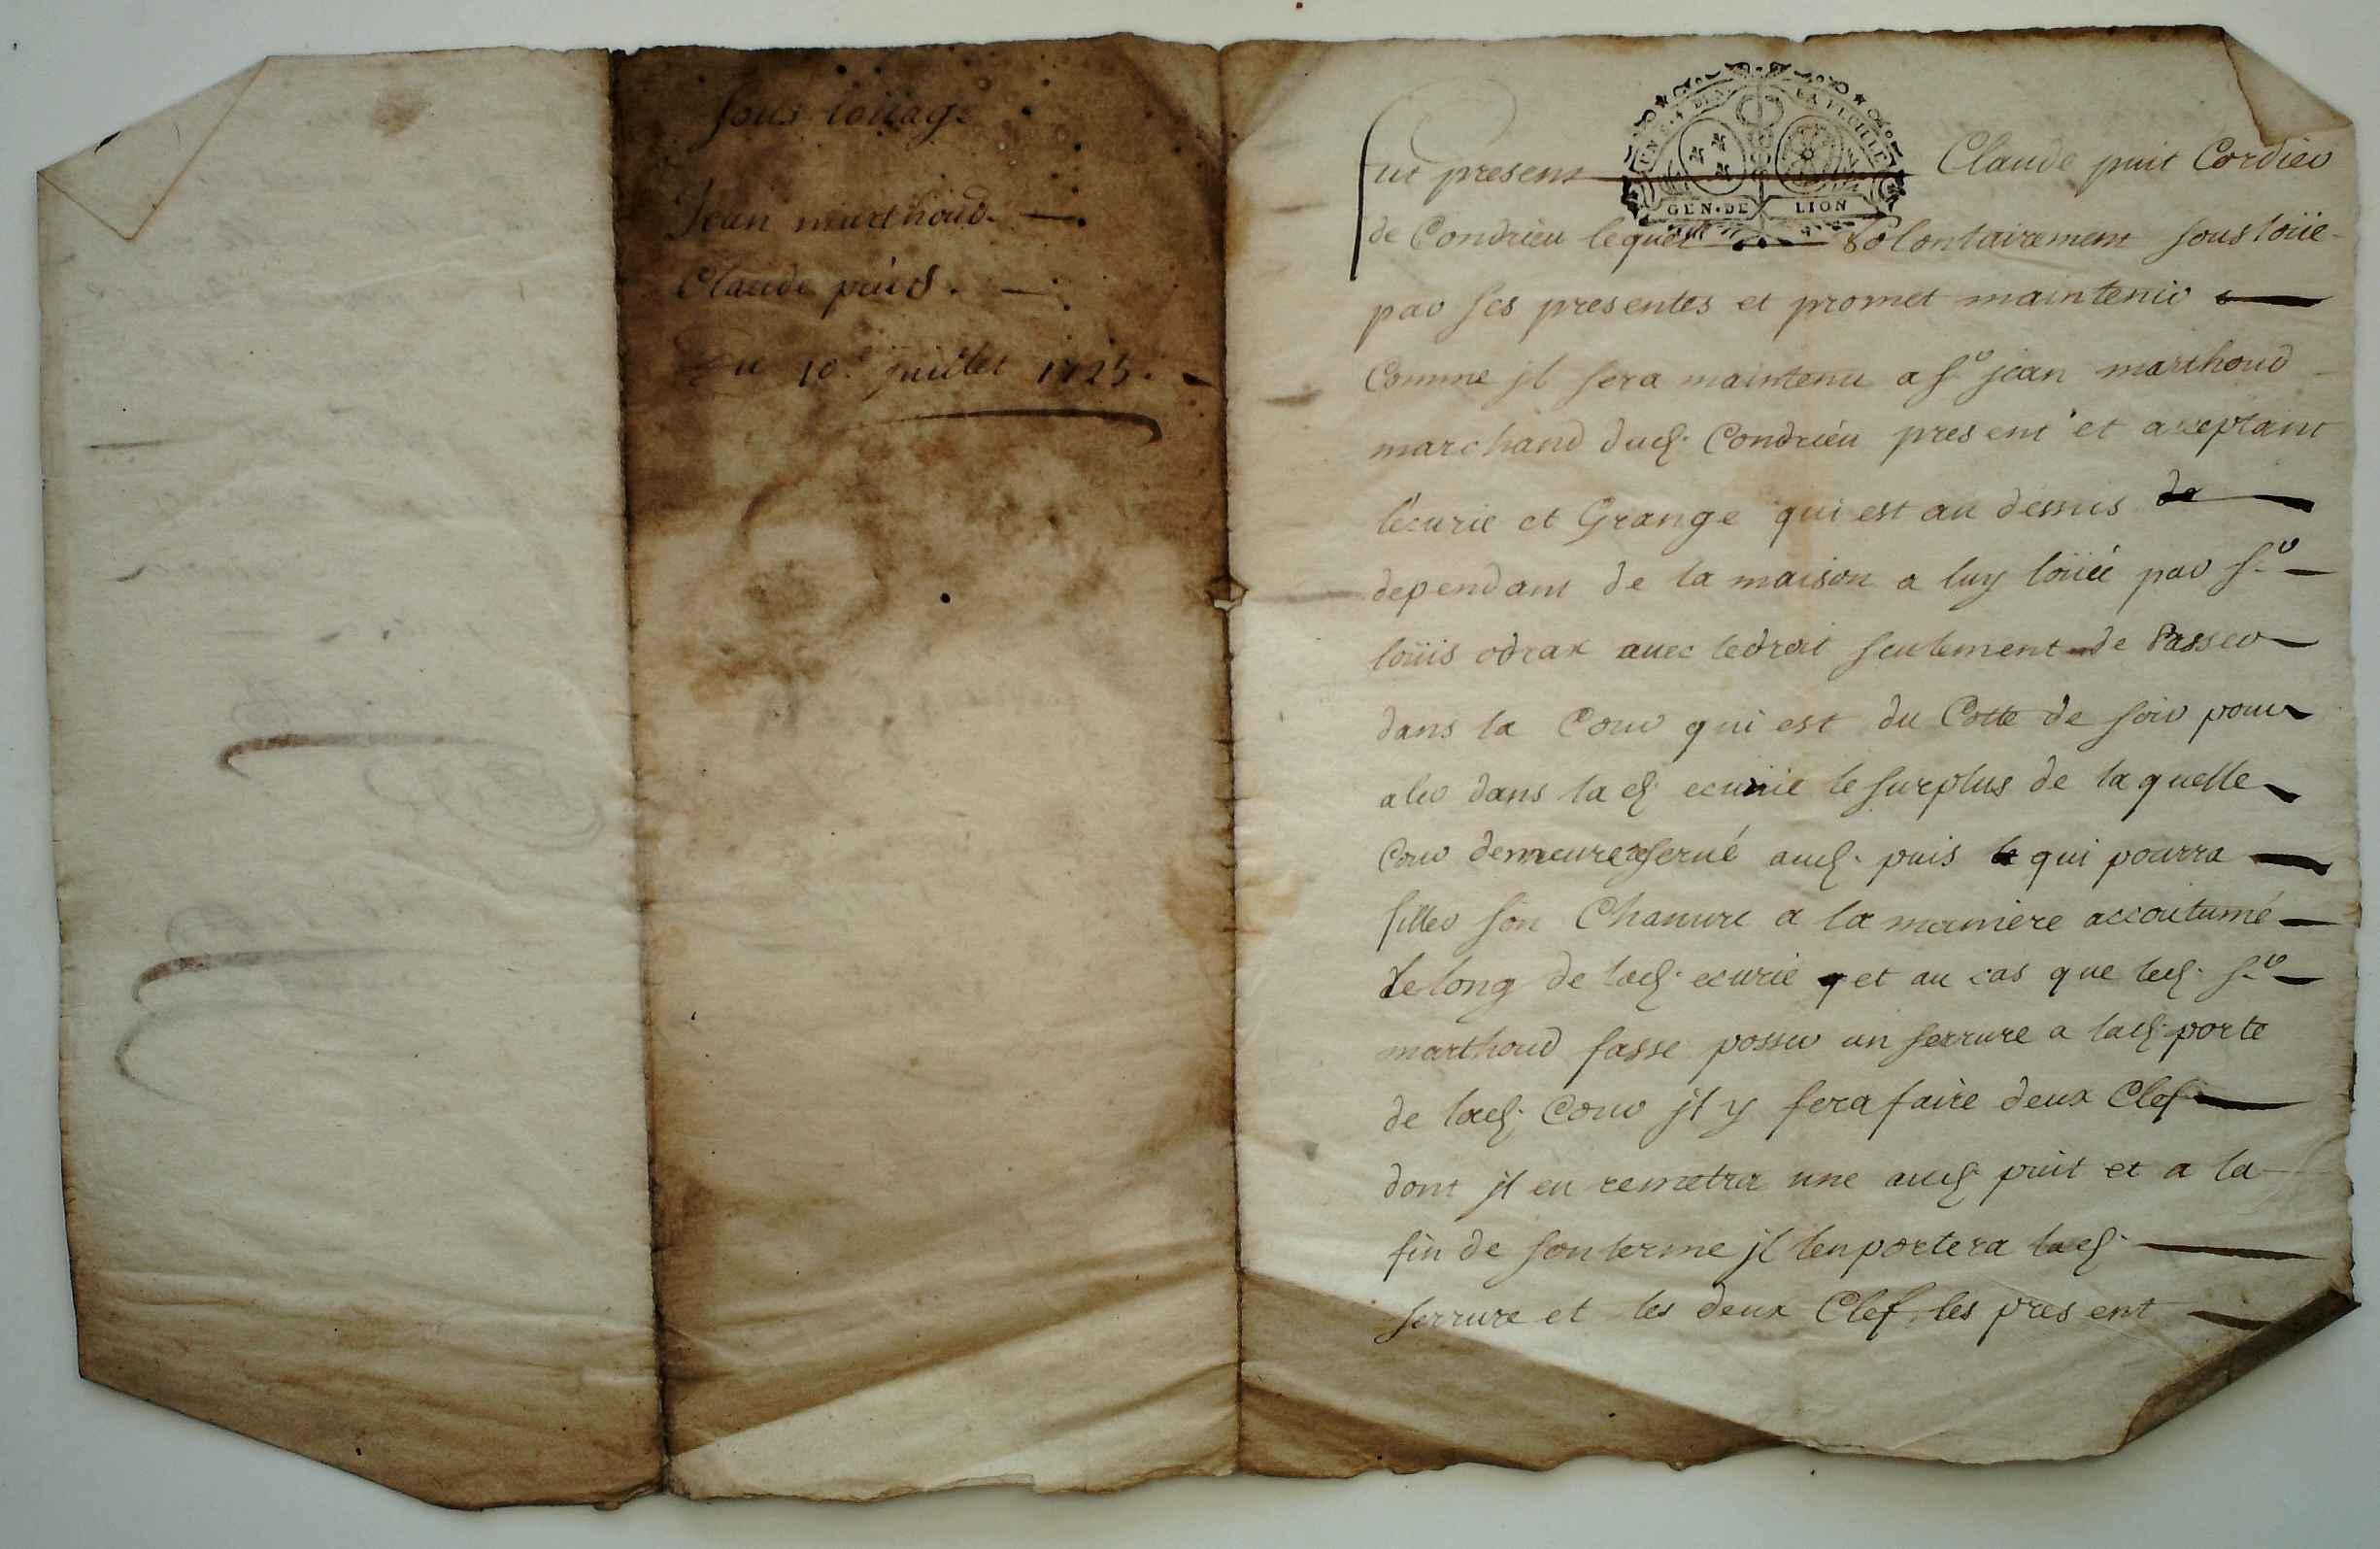 sous loüage
Jean marthoud.
Claude puis.
Du 10e juillet 1725.
UN S. 4 DEN. LA FEUILLE
GEN. DE LION
fut present Claude puit Cordier
de Condrieu lequel volontairement sous loüe
par ses presentes et promet maintenir
Comme jl sera maintenu a sr jean marthoud
marchand dud. Condrieu present et acceptant
l'ecurie et Grange qui est au dessus
dependant de la maison a luy loüeé par sr
loüis odrax avec le droit seulement de Passer
dans la Cour qui est du Cotte de soir pour
aler dans lad. ecurie le surplus de laquelle
Cour demeure reservé aud. puis qui pourra
filler son Chanvre a la maniere accoutumé
le long de lad. ecurie et au cas que led. sr
marthoud fasse posser un serrure a lad. porte
de lad. Cour jl y fera faire deux Clef
dont jl en remetra une aud. puit et a la
fin de son terme jl l'enportera lad.
serrure et les deux Clef, les present